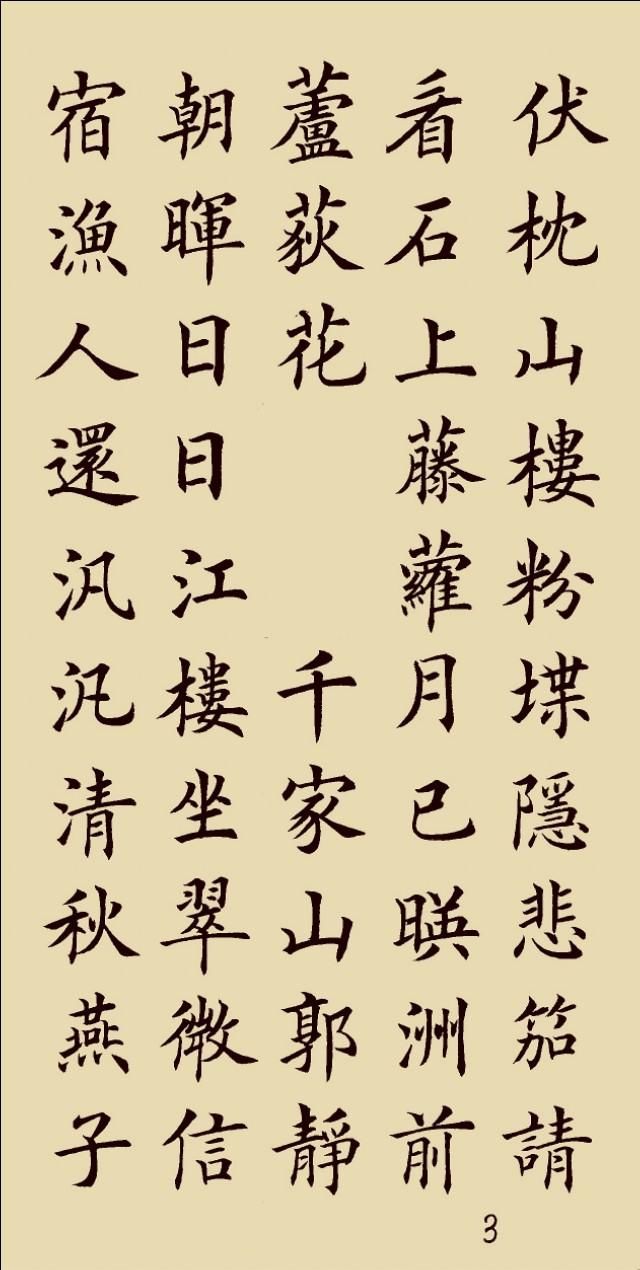 伏枕山樓粉堞隱悲笳請
看石上藤蘿月已暎洲前
蘆荻花 千家山郭靜
朝暉日日江樓坐翠微信
宿漁人還汎汎清秋燕子
3